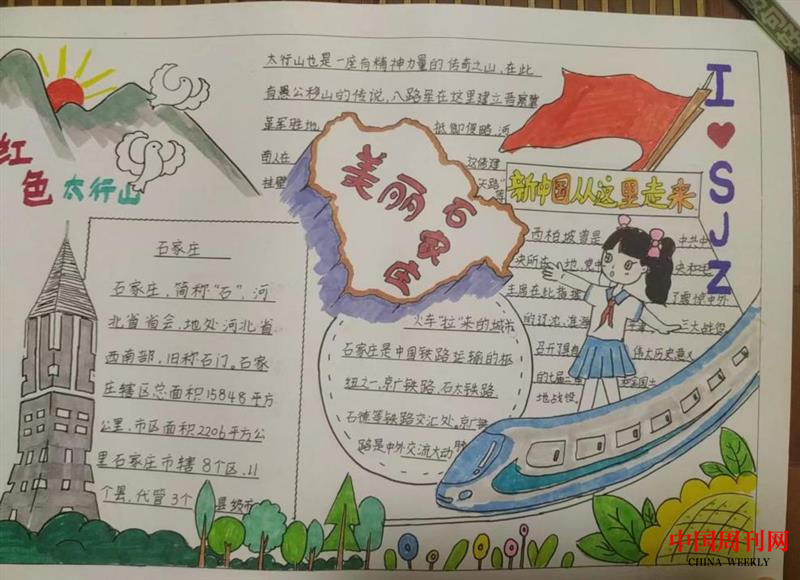 太行山也是一座有精神力量的传奇之山,在此
有愚公移山的传说,八路军在这里建立晋冀鲁
革军胜地 抵御侵略,河
南人在 这修建
挂壁 天路”等
红色太行山
美丽石家庄
I ♥ SJZ
新中国从这里走来
西柏坡曾是 中共中
决所在地,党中 央和毛
主席在此指挥 了震惊中外
的辽沈、淮海 三大战役
召开了具有 伟大历史意义
的七届二
地战役。
石家庄
石家庄,简称“石”,河
北省省会,地处河北省
西南部,旧称石门。石家
庄辖区总面积15848平方
公里,市区面积2206平方公
里石家庄市辖8个区,11
个县,代管3个县级市
火车“拉”来的城市
石家庄是中国铁路运输的枢
纽之一,京广铁路、石太铁路、
石德等铁路交汇处,京广铁
路是中外交流大动脉
中国周刊网
CHINA WEEKLY